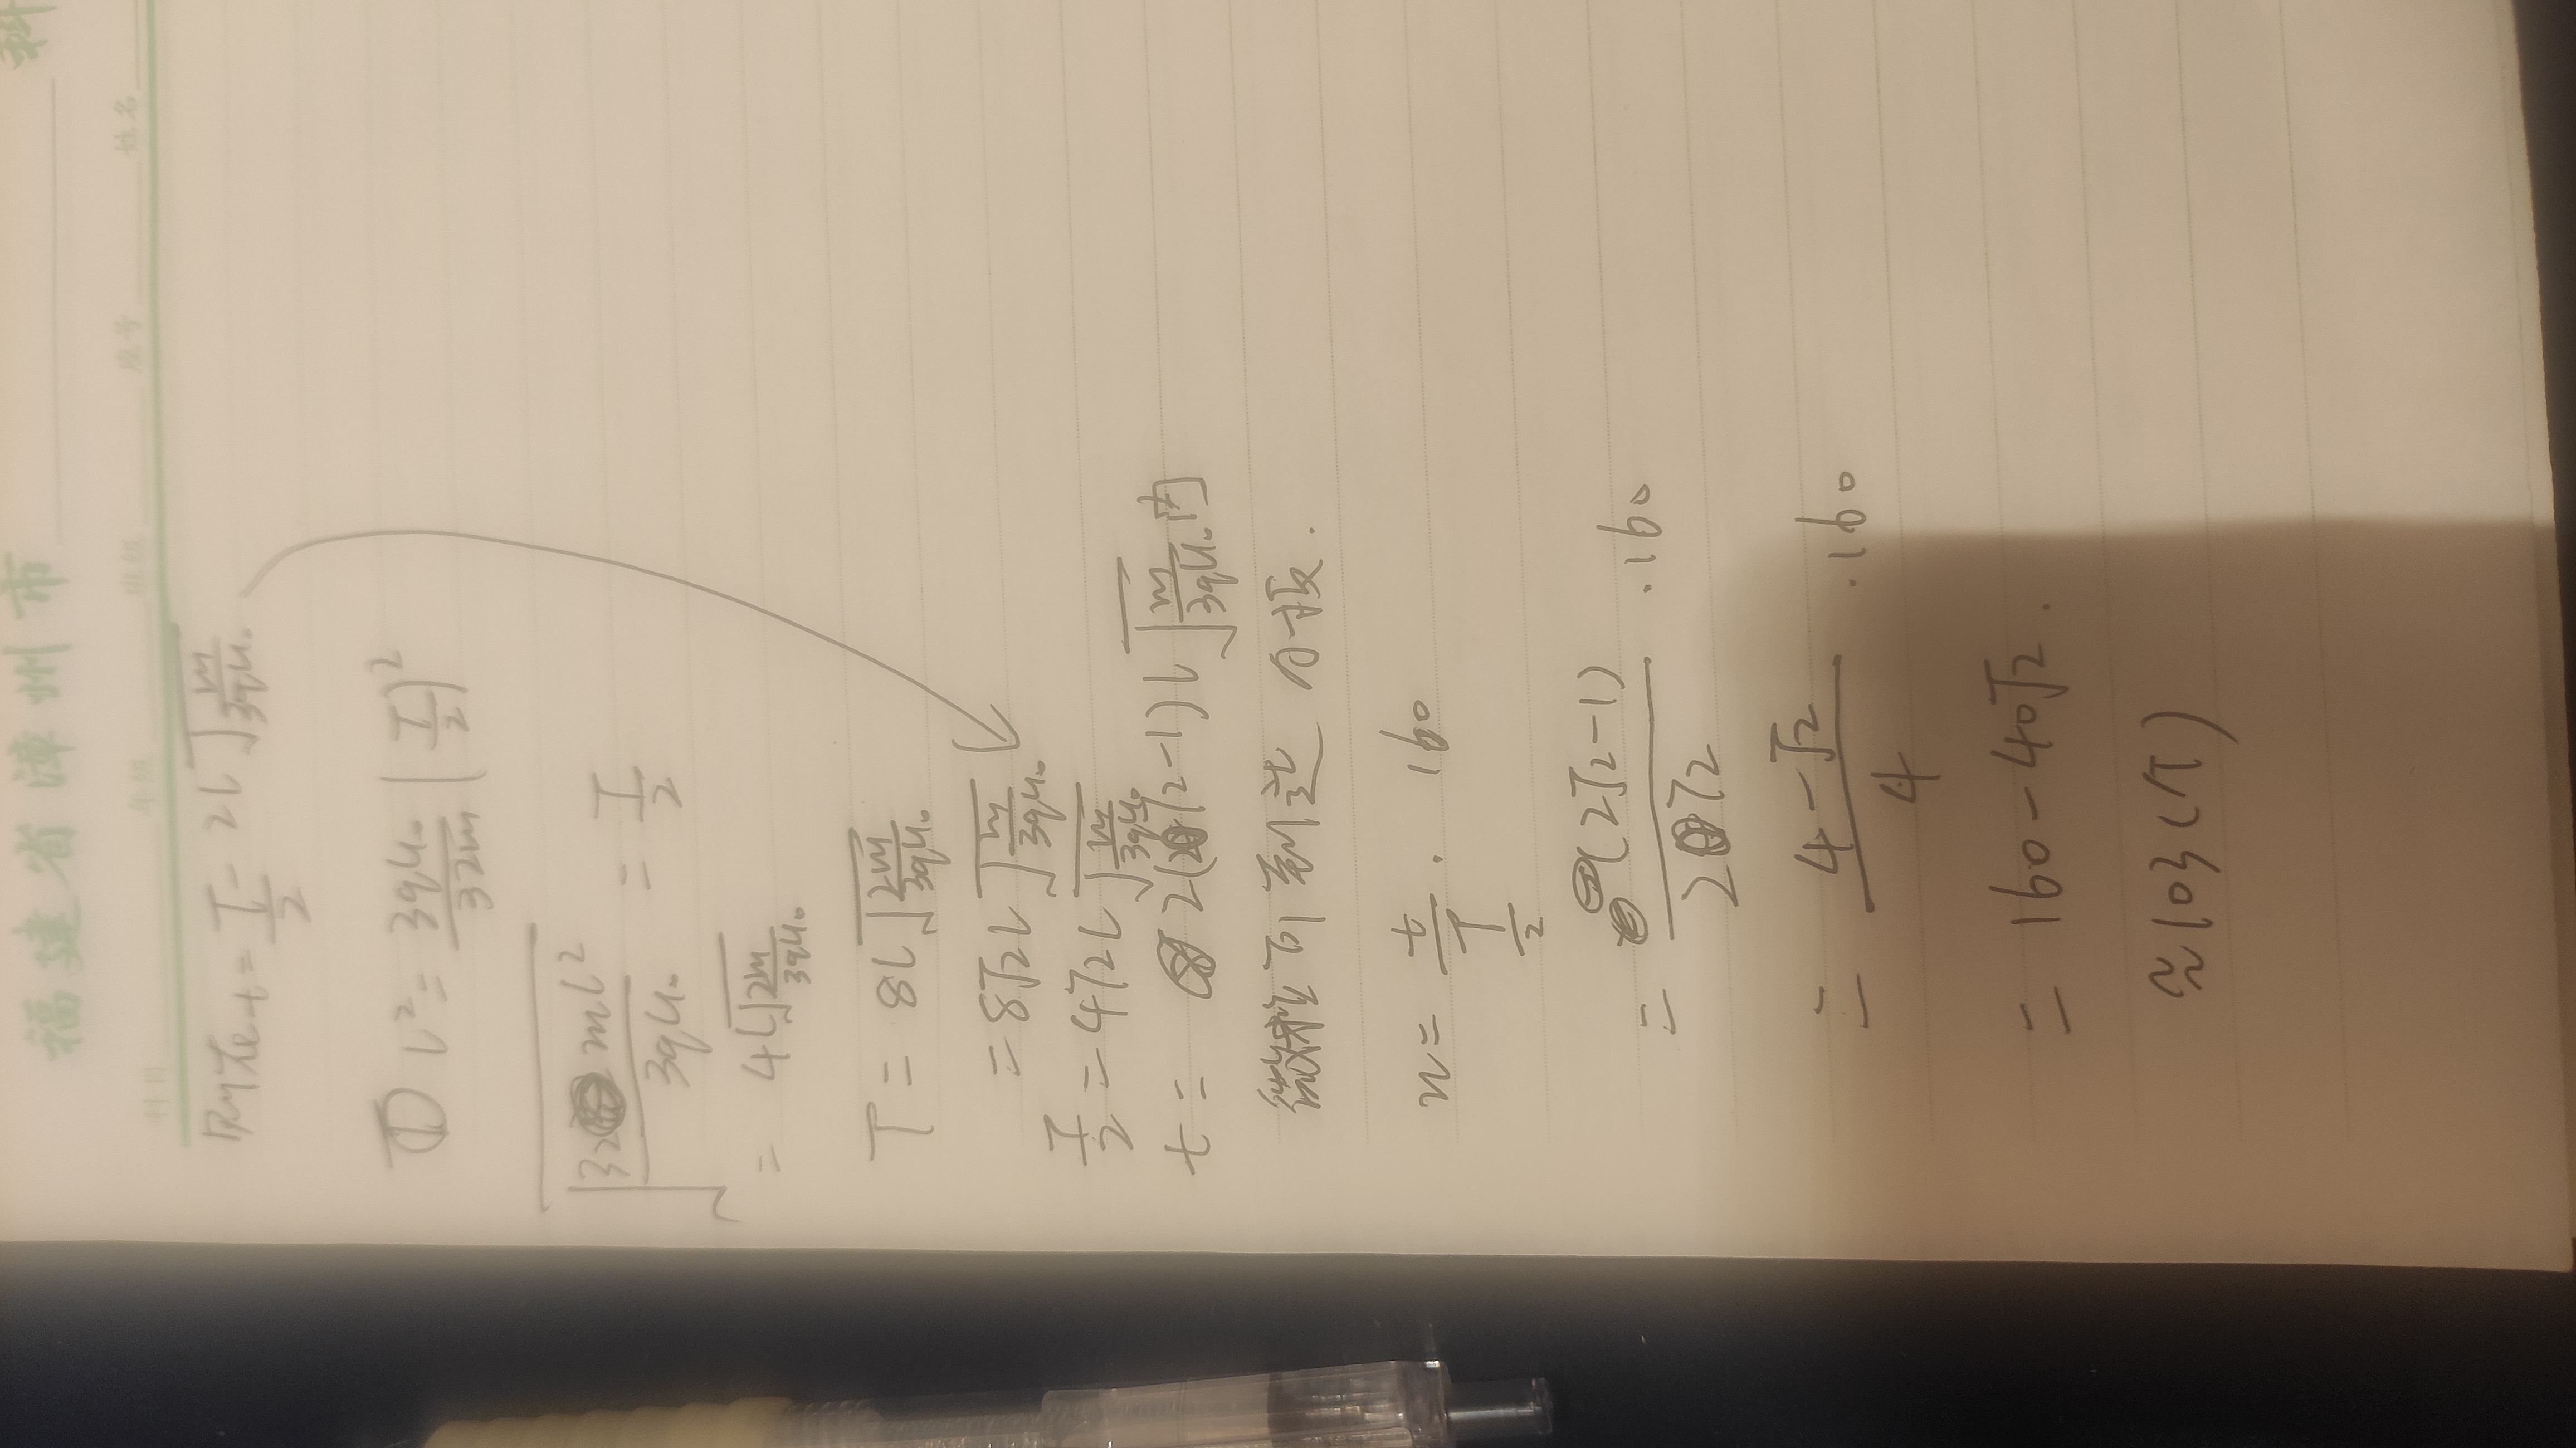 福建省漳州市
科目 年级 班级 座号 姓名
则t = T/2 = 2L√(m/3qU₀)
① L² = 3qU₀/32m (T/2)²
√(32mL²/3qU₀) = T/2
= 4L√(2m/3qU₀)
T = 8L√(2m/3qU₀)
= 8√2L√(m/3qU₀)
T/2 = 4√2L√(m/3qU₀)
t = 2(2√2-1)L√(m/3qU₀) 内
微粒可到达 台板.
n = t/(T/2) · 160
= (2√2-1)/2√2 · 160
= (4-√2)/4 · 160
= 160-40√2.
≈103(个)